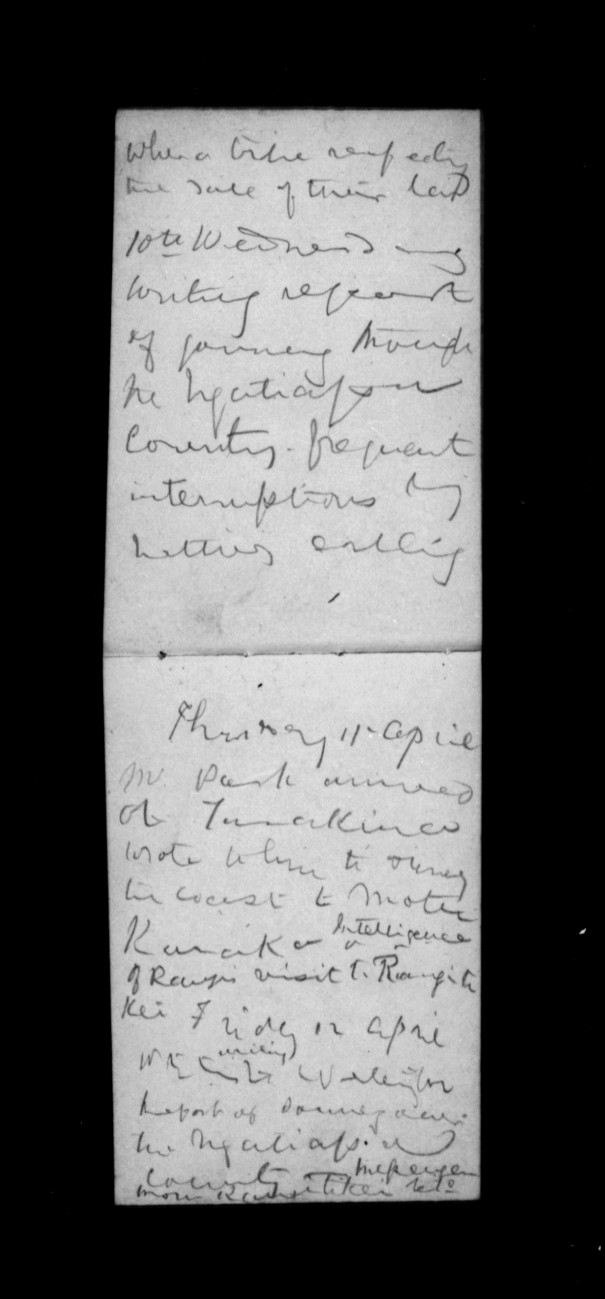 when a tribe respecting
the sale of their land
10th Wednesd
writing report
of journey through
the Ngatiapa
Country. frequent
interruptions by
natives calling
Thursday 11 April
Mr Park arrived
at Turakina
wrote to him to survey
the coast to Motu
Karaka Intelligence
of Rangis visit to Rangiti
kei Friday 12 April
writing
Wellington
Report of Journey
the Ngatiapa
Country Messenger
from Rangitikei